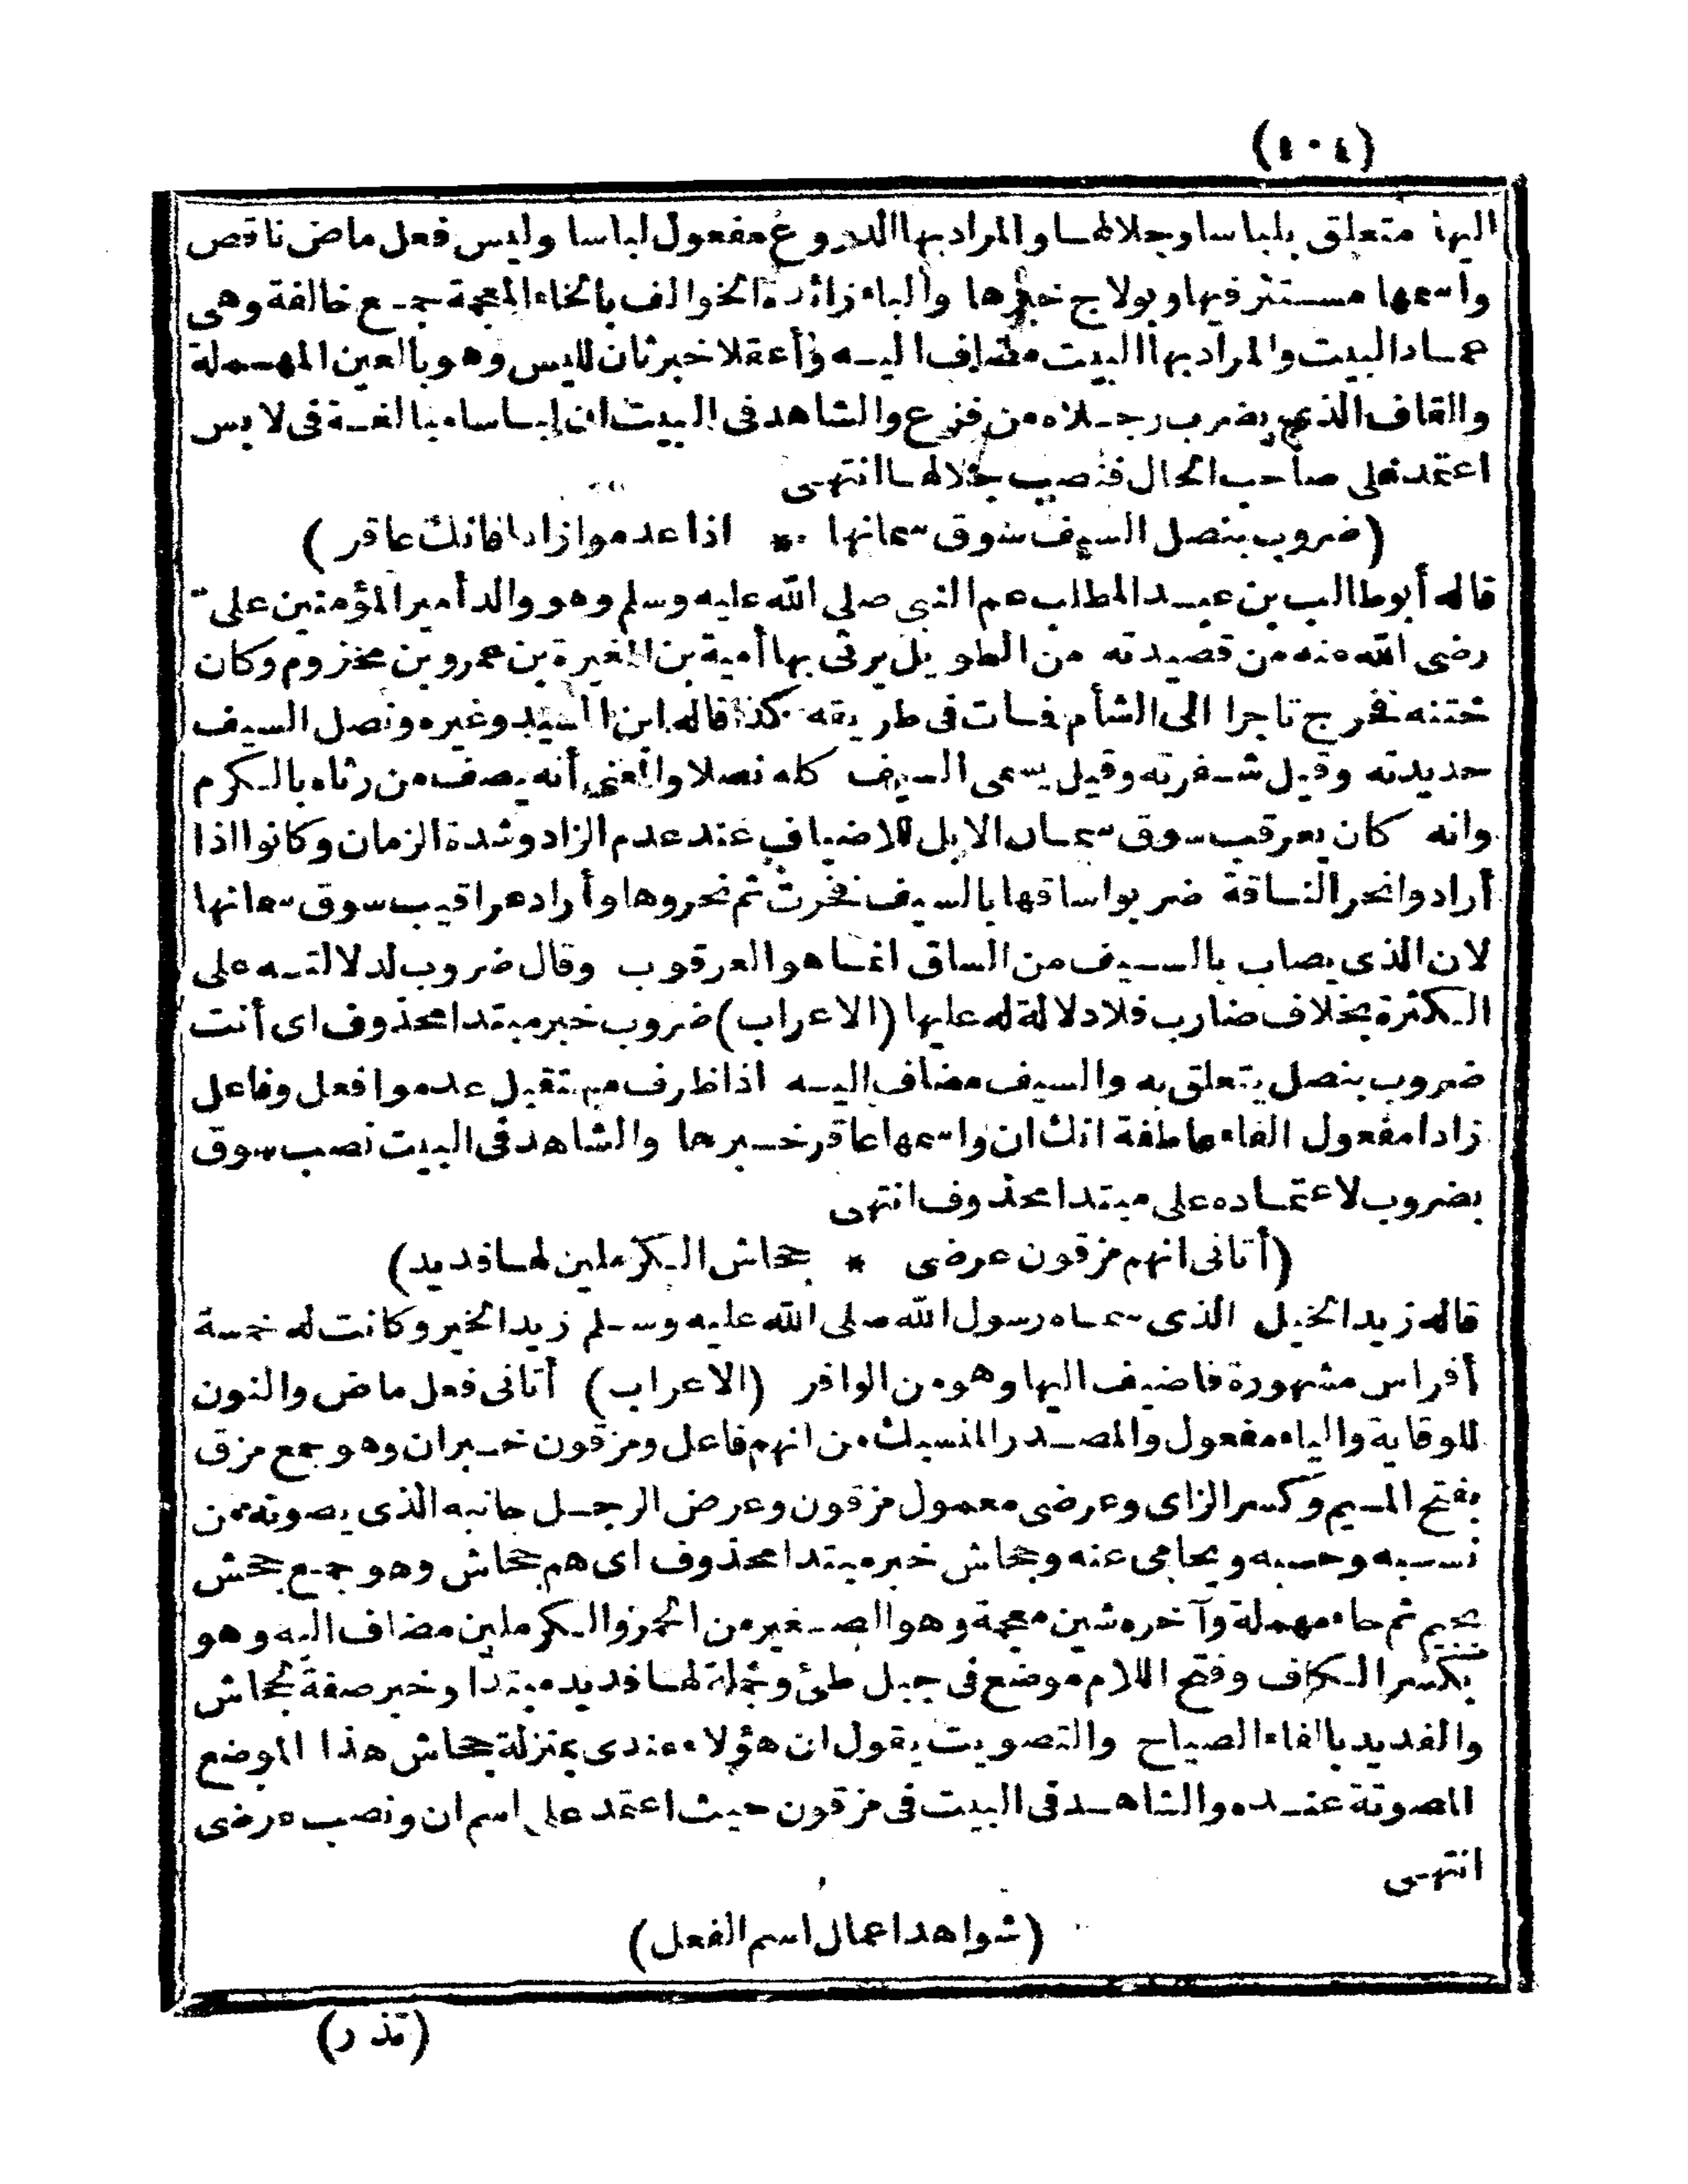 (١٠٤)
اليها متعلق بلباسا وجلالها والمراد بها الدروع مفعول لباسا وليس فعل ماض ناقص
واسمها مستتر فيها وبولاج خبرها والباء زائدة الخوالف بالخاء المعجمة جمع خالفة وهى
عماد البيت والمراد بها البيت مضاف اليه وأعقلا خبر ثان لليس وهو بالعين المهملة
والقاف الذى يضرب رجلاه من فزع والشاهد فى البيت ان لباسا مبالغة فى لابس
اعتمد على صاحب الحال فنصب جلالها انتهى
(ضروب بنصل السيف سوق سمانها * اذا عدموا زادا فانك عاقر)
قاله أبو طالب بن عبد المطلب عم النبى صلى الله عليه وسلم وهو والد أمير المؤمنين على
رضى الله عنه من قصيدته من الطويل يرثى بها أمية بن المغيرة بن عمرو بن مخزوم وكان
ختنه فخرج تاجرا الى الشأم فمات فى طريقه كذا قاله ابن السيد وغيره ونصل السيف
حديدته وقيل شفرته وقيل يسمى السيف كله نصلا والمعنى أنه يصف من رثاه بالكرم
وانه كان يعرقب سوق سمان الابل للاضياف عند عدم الزاد وشدة الزمان وكانوا اذا
أرادوا نحر الناقة ضربوا ساقها بالسيف فخرت ثم نحروها وأراد عراقيب سوق سمانها
لان الذى يصاب بالسيف من الساق انما هو العرقوب وقال ضروب لدلالته على
الكثرة بخلاف ضارب فلا دلالة له عليها (الاعراب) ضروب خبر مبتدا محذوف اى أنت
ضروب بنصل يتعلق به والسيف مضاف اليه اذا ظرف مستقبل عدموا فعل وفاعل
زادا مفعول الفاء عاطفة انك ان واسمها عاقر خبرها والشاهد فى البيت نصب سوق
بضروب لاعتماده على مبتدا محذوف انتهى
(أتانى انهم مزقون عرضى * جحاش الكرملين لها فديد)
قاله زيد الخيل الذى سماه رسول الله صلى الله عليه وسلم زيد الخير وكانت له خمسة
أفراس مشهورة فاضيف اليها وهو من الوافر (الاعراب) أتانى فعل ماض والنون
للوقاية والياء مفعول والمصدر المنسبك من انهم فاعل ومزقون خبران وهو جمع مزق
بفتح الميم وكسر الزاى وعرضى معمول مزقون وعرض الرجل جانبه الذى يصونه من
نسبه وحسبه ويحامى عنه وجحاش خبر مبتدا محذوف اى هم جحاش وهو جمع جحش
بجيم ثم حاء مهملة وآخره شين معجمة وهو الصغير من الحمر والكرملين مضاف اليه وهو
بكسر الكاف وفتح اللام موضع فى جبل طئ وجملة لها فديد مبتدا وخبر صفة لجحاش
والفديد بالفاء الصياح والتصويت يقول ان هؤلاء عندى بمنزلة جحاش هذا الموضع
المصوتة عنده والشاهد فى البيت فى مزقون حيث اعتمد على اسم ان ونصب عرضى
انتهى
(شواهد اعمال اسم الفعل)
(تذر)